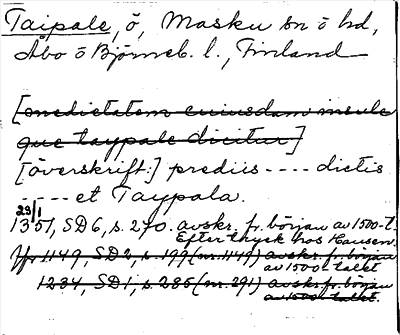 Taipale, ö, Masku sn o hd,
Åbo o Björneb. l., Finland
[medietatem cuiusdam insule
que taypale dicitur]
[överskrift:] prediis ---- dictis
---- et Taypala.
29/1
1351, SD6, s. 270. avskr. fr. början av 1500-t.
Efter tryck hos Hausen.
Yfr 1149, SD2, s. 199 (nr. 1149) avskr. fr. början
av 1500 talet
1234, SD1, s. 285 (nr. 291) avskr. fr. början
av 1500 talet.